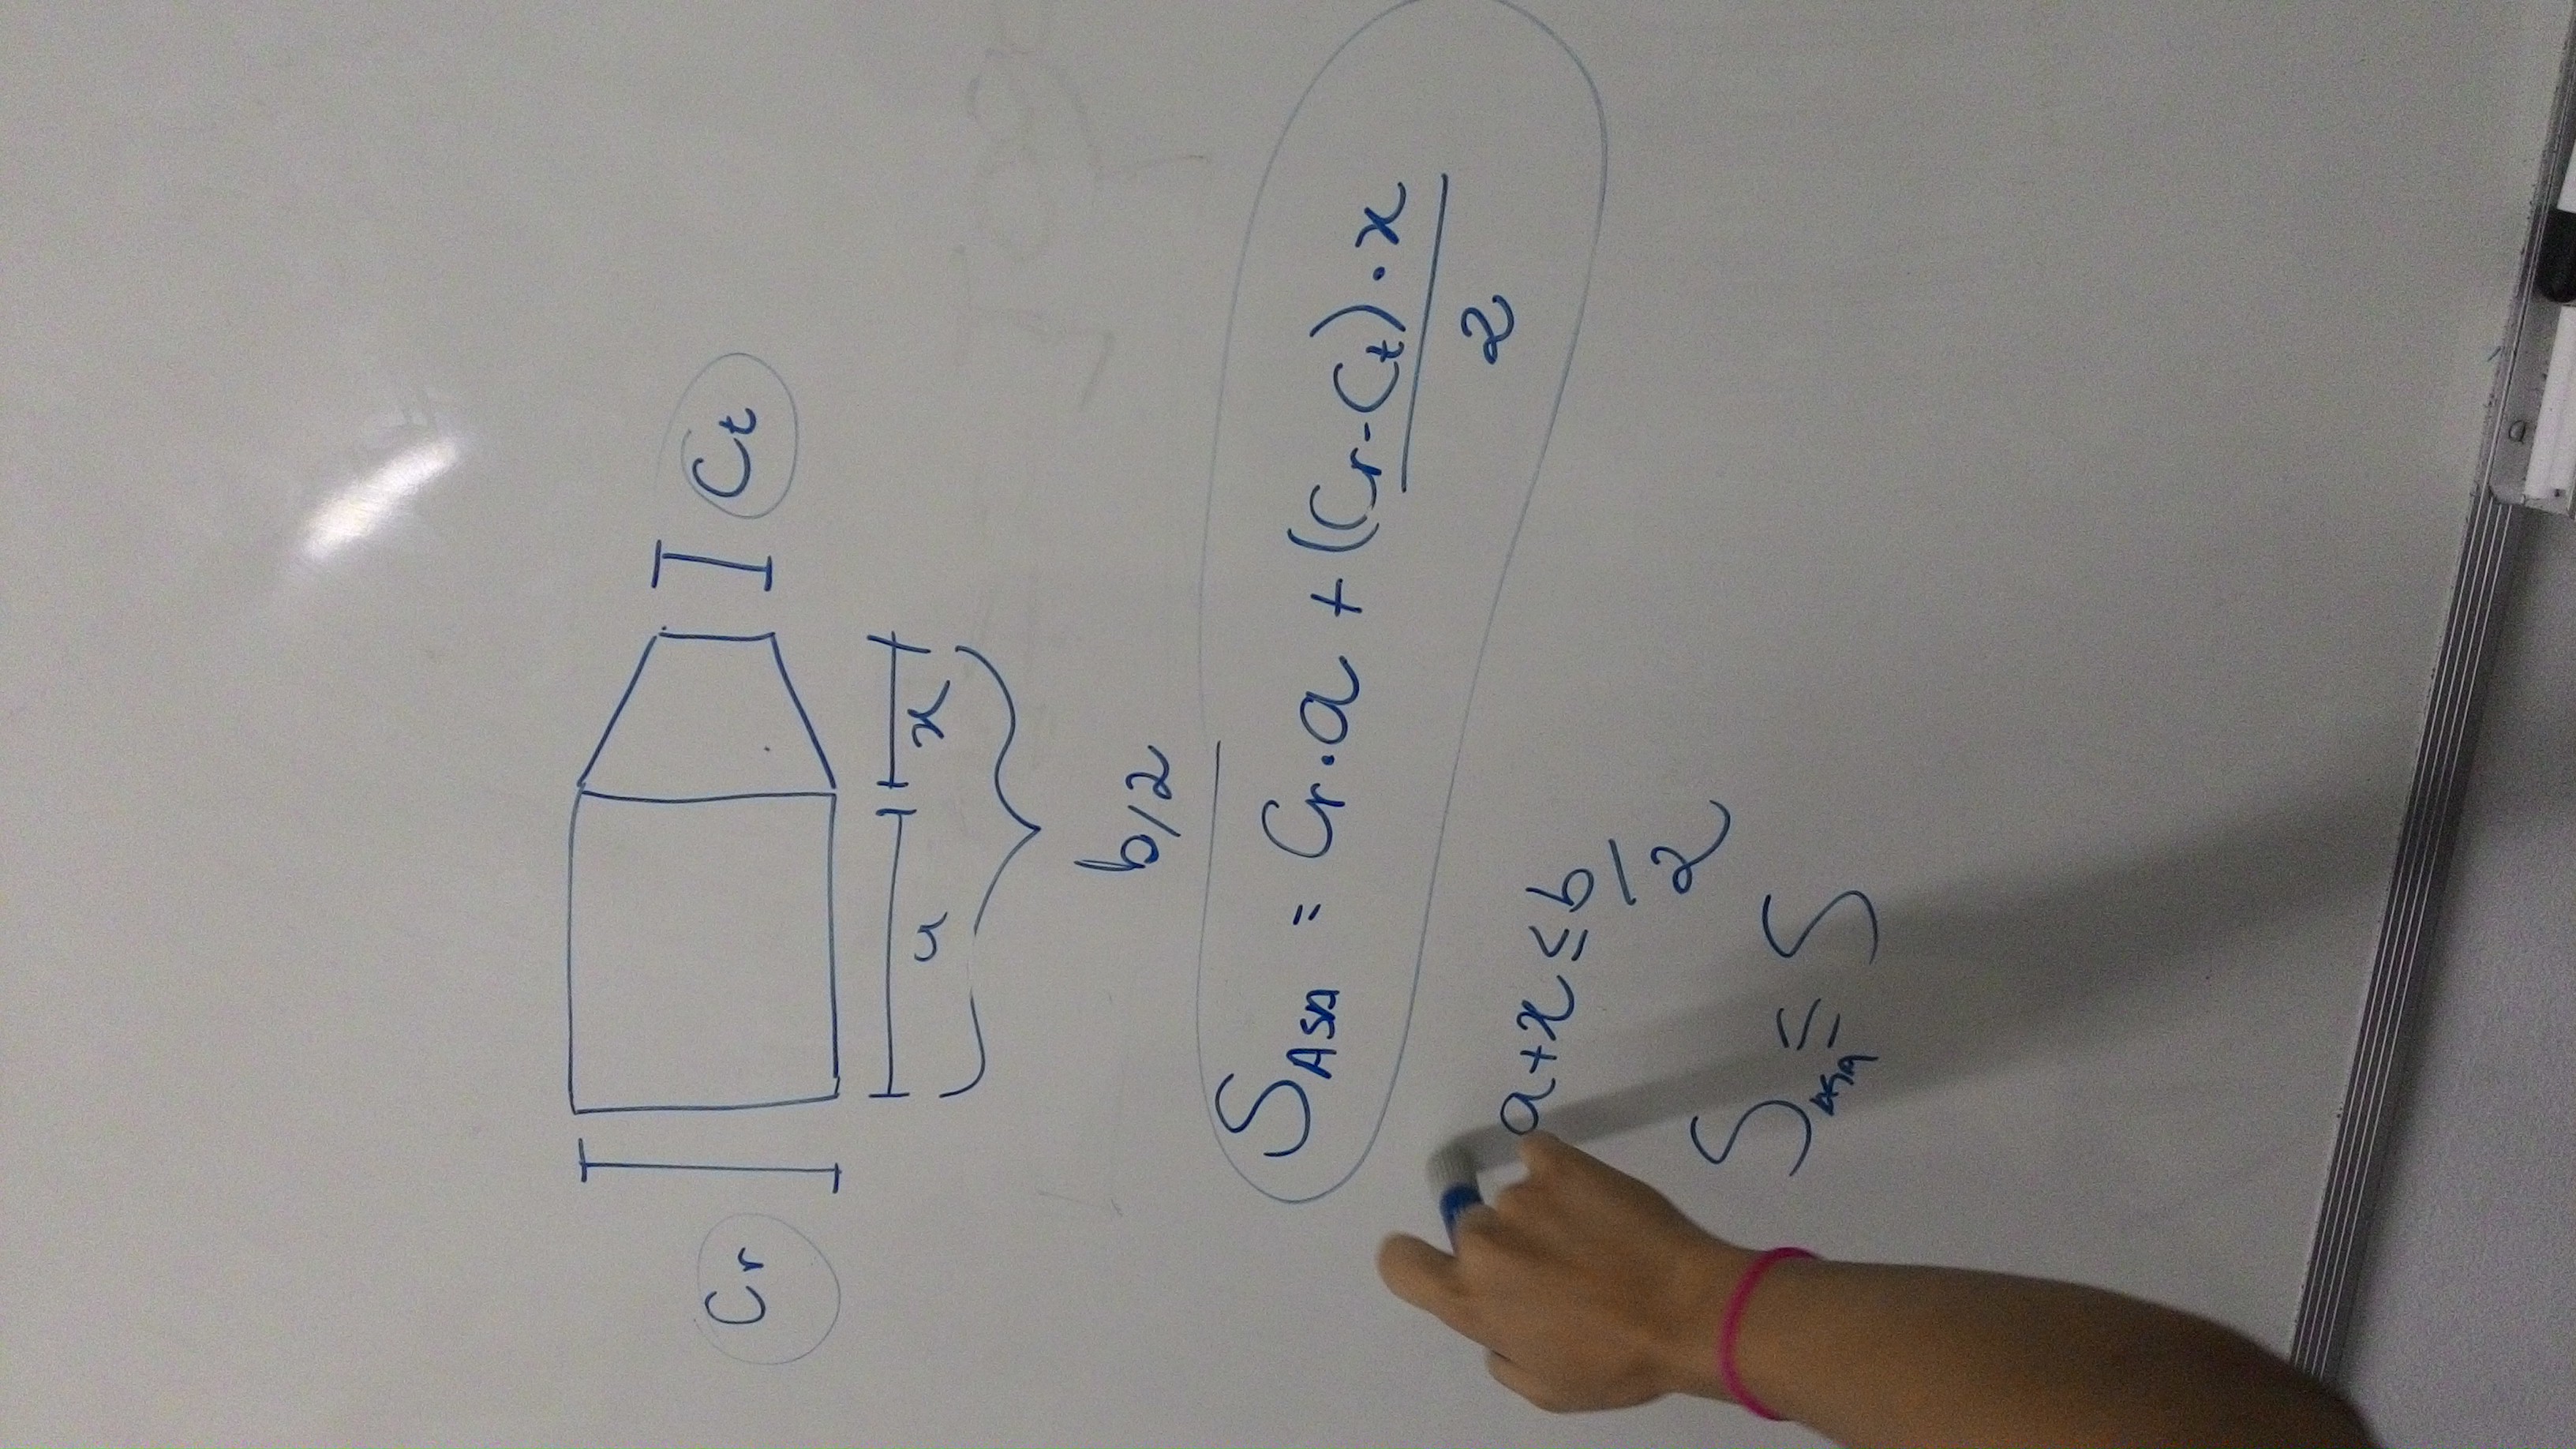 Cr
Ct
a x
b/2
S_ASA = Cr.a + (Cr-Ct).x / 2
a+x ≤ b/2
S_ASA ≤ S